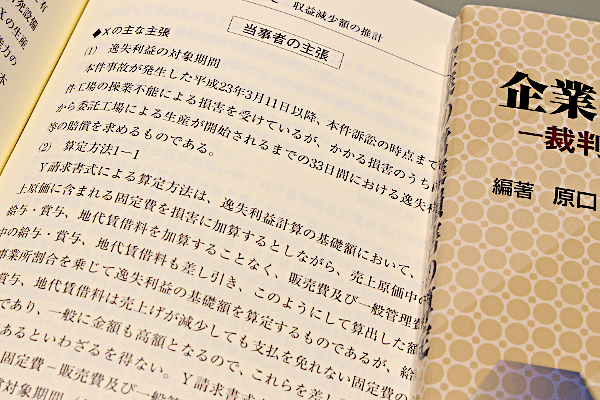 収益減少額の推計
当事者の主張
◆Xの主な主張
(1) 逸失利益の対象期間
本件事故が発生した平成23年3月11日以降、本件訴訟の時点まで
件工場の操業不能による損害を受けているが、かかる損害のうち
から委託工場による生産が開始されるまでの33日間における逸失利
等の賠償を求めるものである。
(2) 算定方法1－1
Y請求書式による算定方法は、逸失利益計算の基礎額において、
上原価に含まれる固定費を損害に加算するとしながら、売上原価中の
給与・賞与、地代賃借料を加算することなく、販売費及び一般管理費
中の給与・賞与、地代賃借料も差し引き、このようにして算出した額
事業所割合を乗じて逸失利益の基礎額を算定するものであるが、給
賞与、地代賃借料は売上げが減少しても支払を免れない固定費の
であり、一般に金額も高額となるので、これらを差し
あるといわざるを得ない。Y請求書式
固定費－販売費及び一般
対象期間
有
発設備
Xの生産
能力の
本
企業
―裁判
編著 原口